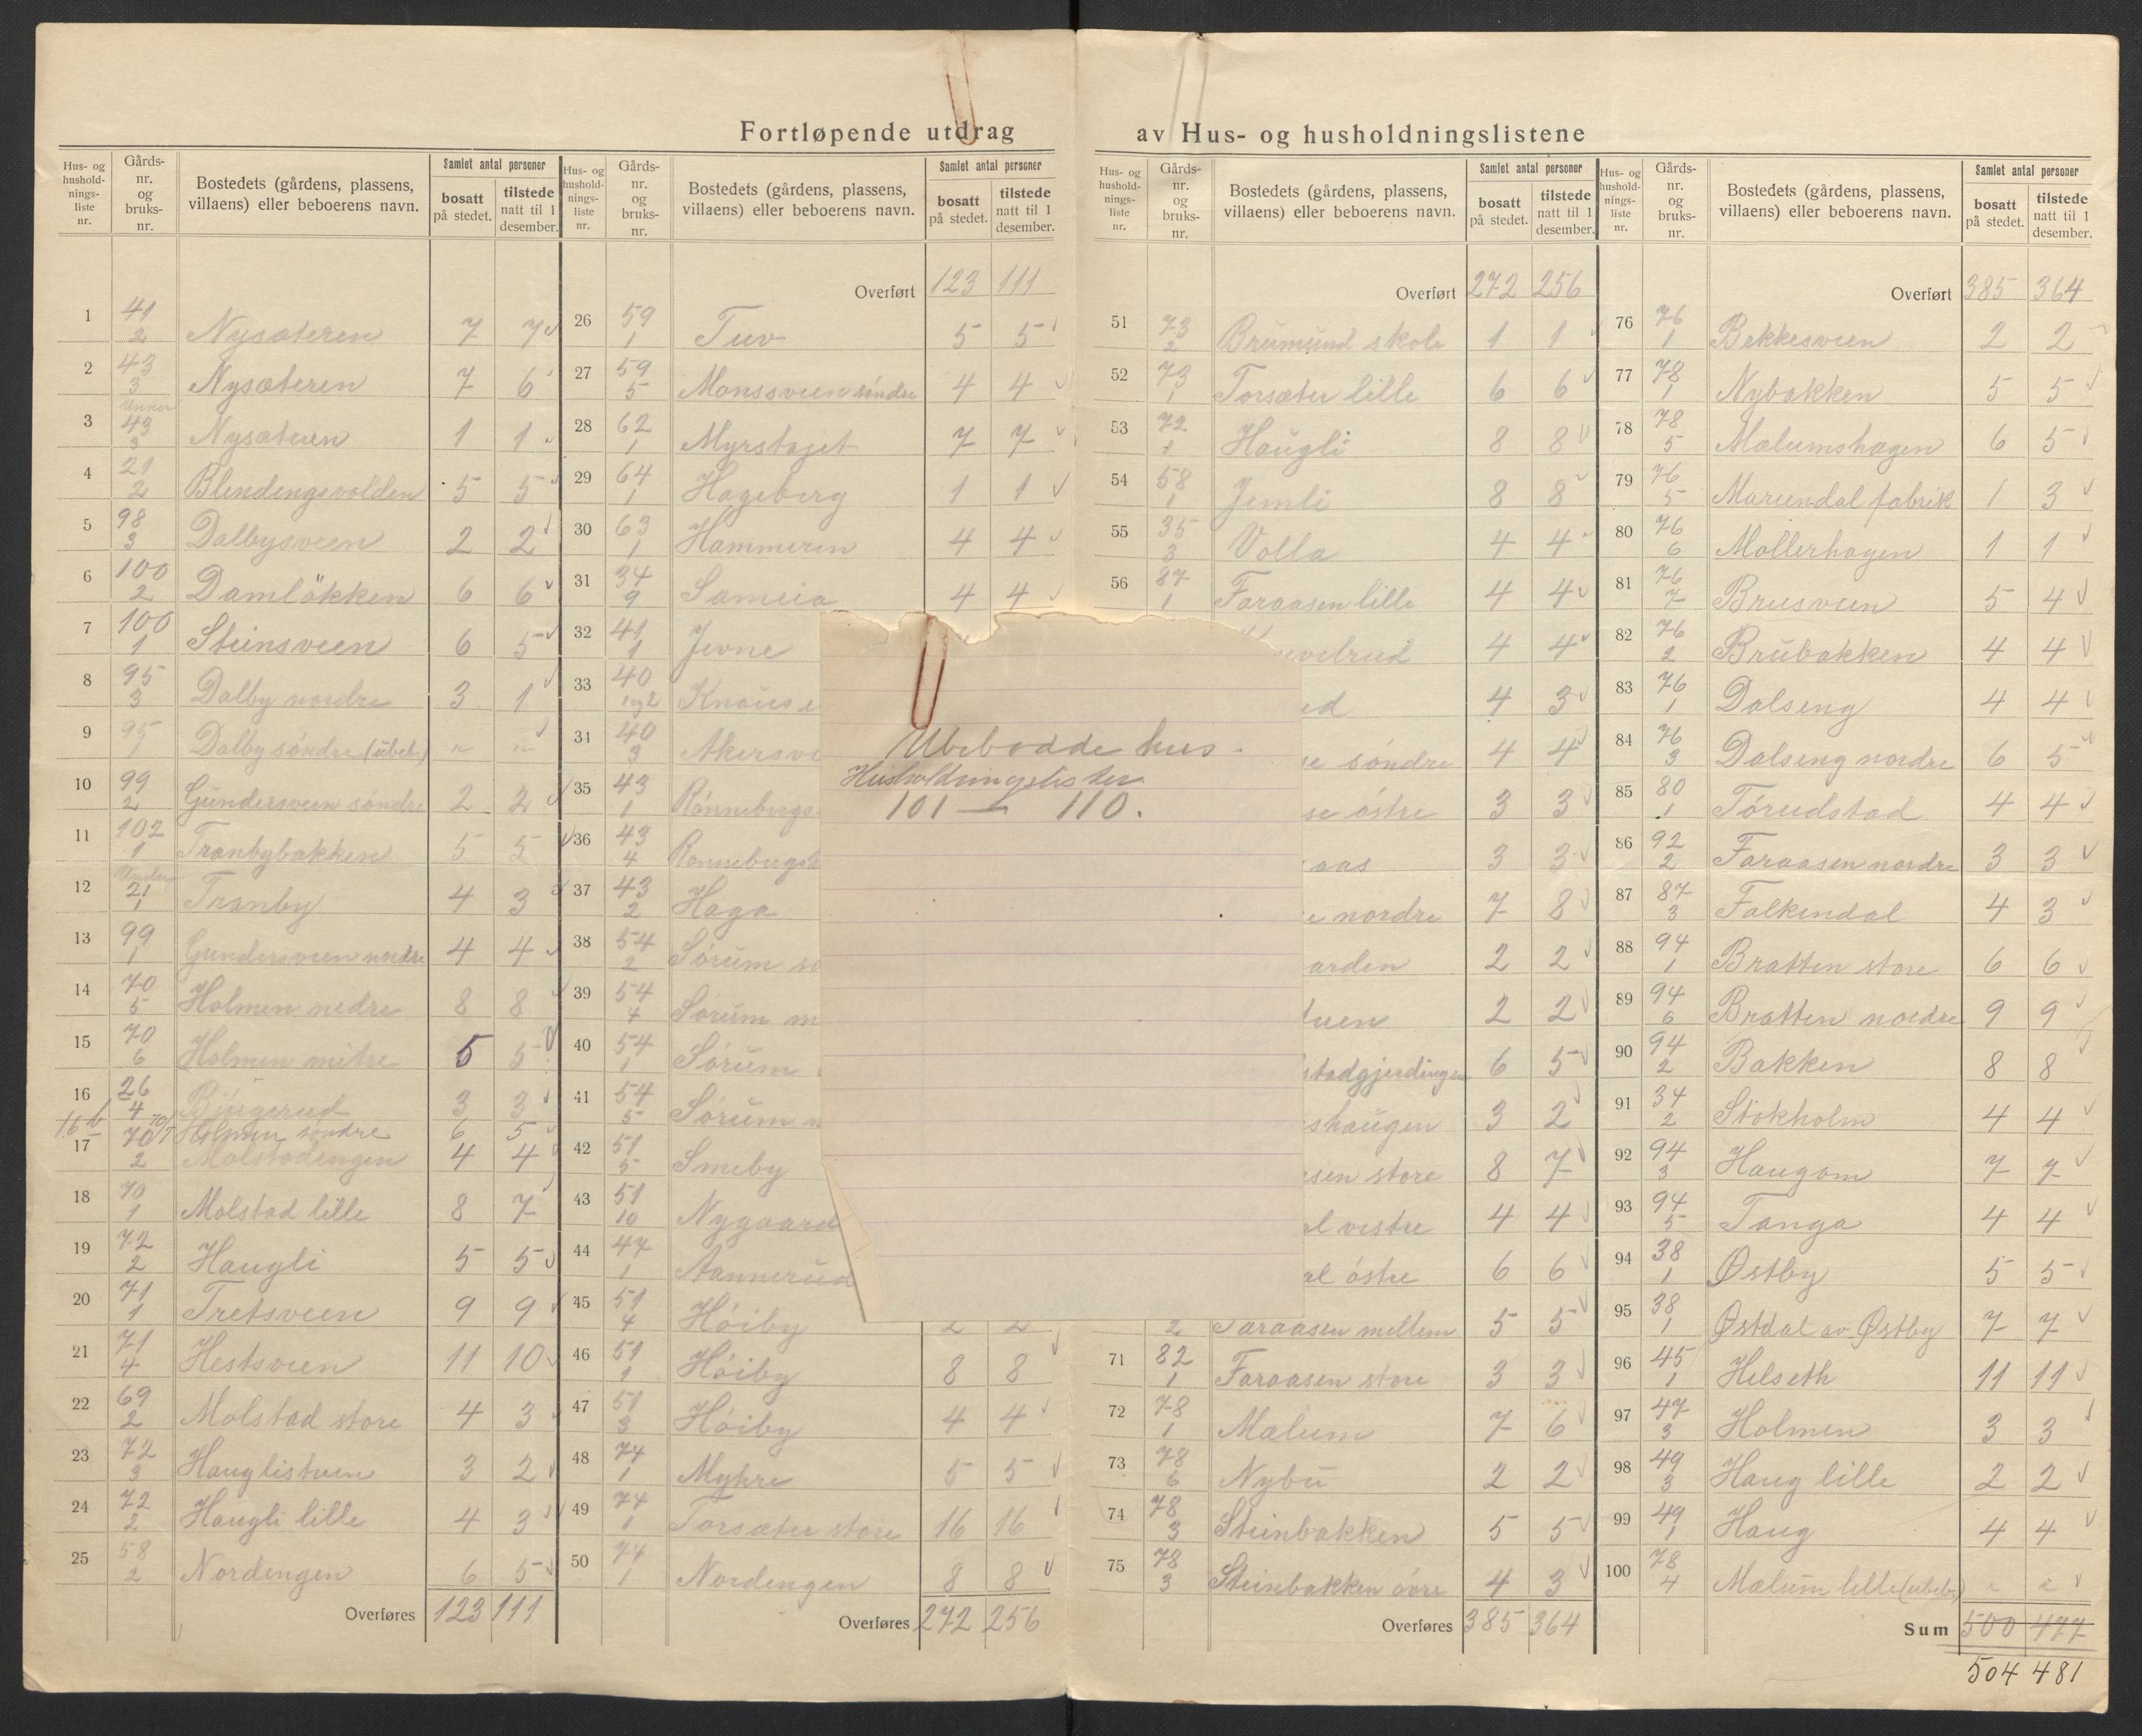 Fortløpende utdrag av Hus- og husholdningslistene
Hus- og husholdningsliste nr. | Gårds-nr. og bruks-nr. | Bostedets (gårdens, plassens, villaens) eller beboerens navn. | Samlet antal personer | bosatt på stedet. | tilstede natt til 1 desember.
1 41/2 Nysæteren 7 7
2 43/3 Nysæteren 7 6
3 43/3 Nysæteren 1 1
4 21/2 Blendengsvolden 5 5
5 98/3 Dalbysveen 2 2
6 100/2 Damlökken 6 6
7 100/1 Steinsveen 6 5
8 95/3 Dalby nordre 3 1
9 95/1 Dalby søndre (ubeb.) " "
10 99/2 Gundersveen søndre 2 2
11 102/1 Tranbybakken 5 5
12 Under 21/1 Tranby 4 3
13 99/1 Gundersveen nordre 4 4
14 70/5 Holmen nedre 8 8
15 70/6 Holmen mitre 5 5
16 26/4 Bjørgerud 3 3
16 b 70/7 Holmen søndre 6 5
17 70/2 Molstadengen 4 4
18 70/1 Molstad lille 8 7
19 72/2 Haugli 5 5
20 71/1 Tretsveen 9 9
21 71/4 Hestsveen 11 10
22 69/2 Molstad store 4 3
23 72/3 Hauglistuen 3 2
24 72/2 Haugli lille 4 3
25 58/2 Nordengen 6 5
Overføres 123 111
Hus- og husholdningsliste nr. | Gårds-nr. og bruks-nr. | Bostedets (gårdens, plassens, villaens) eller beboerens navn. | Samlet antal personer | bosatt på stedet. | tilstede natt til 1 desember.
Overført 123 111
26 59/1 Tuv 5 5
27 59/5 Monssveen søndre 4 4
28 62/1 Myrstøjet 7 7
29 64/1 Hageberg 1 1
30 63/1 Hammeren 4 4
31 34/9 Sameia 4 4
32 41/1 Jevne
33 40/1 og 2 Knause
34 40/3 Akersve
35 43/1 Rønnebergs
36 43/4 Rønnebergs
37 43/2 Haga
38 54/2 Sørum
39 54/4 Sørum
40 54/1 Sørum
41 54/5 Sørum
42 51/5 Smeby
43 51/10 Nygaard
44 47/1 Aannerud
45 51/4 Høiby 2 2
46 51/1 Høiby 8 8
47 51/3 Høiby 4 4
48 74/1 Myhre 5 5
49 74/1 Torsæter store 16 16
50 74/1 Nordengen 8 8
Overføres 272 256
Ubebodde hus.
Husholdningslister
101 — 110.
Hus- og husholdningsliste nr. | Gårds-nr. og bruks-nr. | Bostedets (gårdens, plassens, villaens) eller beboerens navn. | Samlet antal personer | bosatt på stedet. | tilstede natt til 1 desember.
Overført 272 256
51 73/2 Brumund skole 1 1
52 73/1 Torsæter lille 6 6
53 72/1 Haugli 8 8
54 58/1 Jemli 8 8
55 35/3 Volla 4 4
56 87/1 Faraasen lille 4 4
velrud 4 4
ed 4 3
se søndre 4 4
se østre 3 3
aas 3 3
e nordre 7 8
arden 2 2
tuen 2 2
stadgjerdingen 6 5
shaugen 3 2
sen store 8 7
al vestre 4 4
al østre 6 6
2 Faraasen mellem 5 5
71 82/1 Faraasen store 3 3
72 78/1 Mælum 7 6
73 78/6 Nybu 2 2
74 78/3 Steinbakken 5 5
75 78/3 Steinbakken övre 4 3
Overføres 385 364
Hus- og husholdningsliste nr. | Gårds-nr. og bruks-nr. | Bostedets (gårdens, plassens, villaens) eller beboerens navn. | Samlet antal personer | bosatt på stedet. | tilstede natt til 1 desember.
Overført 385 364
76 76/1 Bekkesveen 2 2
77 78/1 Nybakken 5 5
78 78/5 Mælumshagen 6 5
79 76/5 Mariendal fabrik 1 3
80 76/6 Møllerhagen 1 1
81 76/7 Brusveen 5 4
82 76/2 Brubakken 4 4
83 76/1 Dalseng 4 4
84 76/3 Dalseng nordre 6 5
85 80/1 Torudstad 4 4
86 92/2 Faraasen nordre 3 3
87 87/3 Falkendal 4 3
88 94/1 Bratten store 6 6
89 94/6 Bratten nordre 9 9
90 94/2 Bakken 8 8
91 34/2 Stokholm 4 4
92 94/3 Haugom 7 7
93 94/5 Tanga 4 4
94 38/1 Østby 5 5
95 38/1 Østdal av Østby 7 7
96 45/1 Helseth 11 11
97 47/3 Holmen 3 3
98 49/3 Haug lille 2 2
99 49/1 Haug 4 4
100 78/4 Mælum lille (ubebo) " "
Sum 500 477
504 481